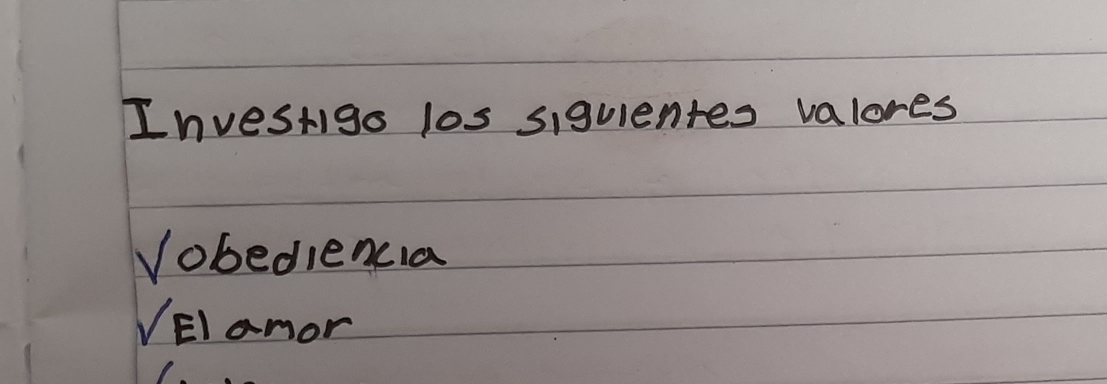 Investigo los siguientes valores
√ obediencia
√ El amor